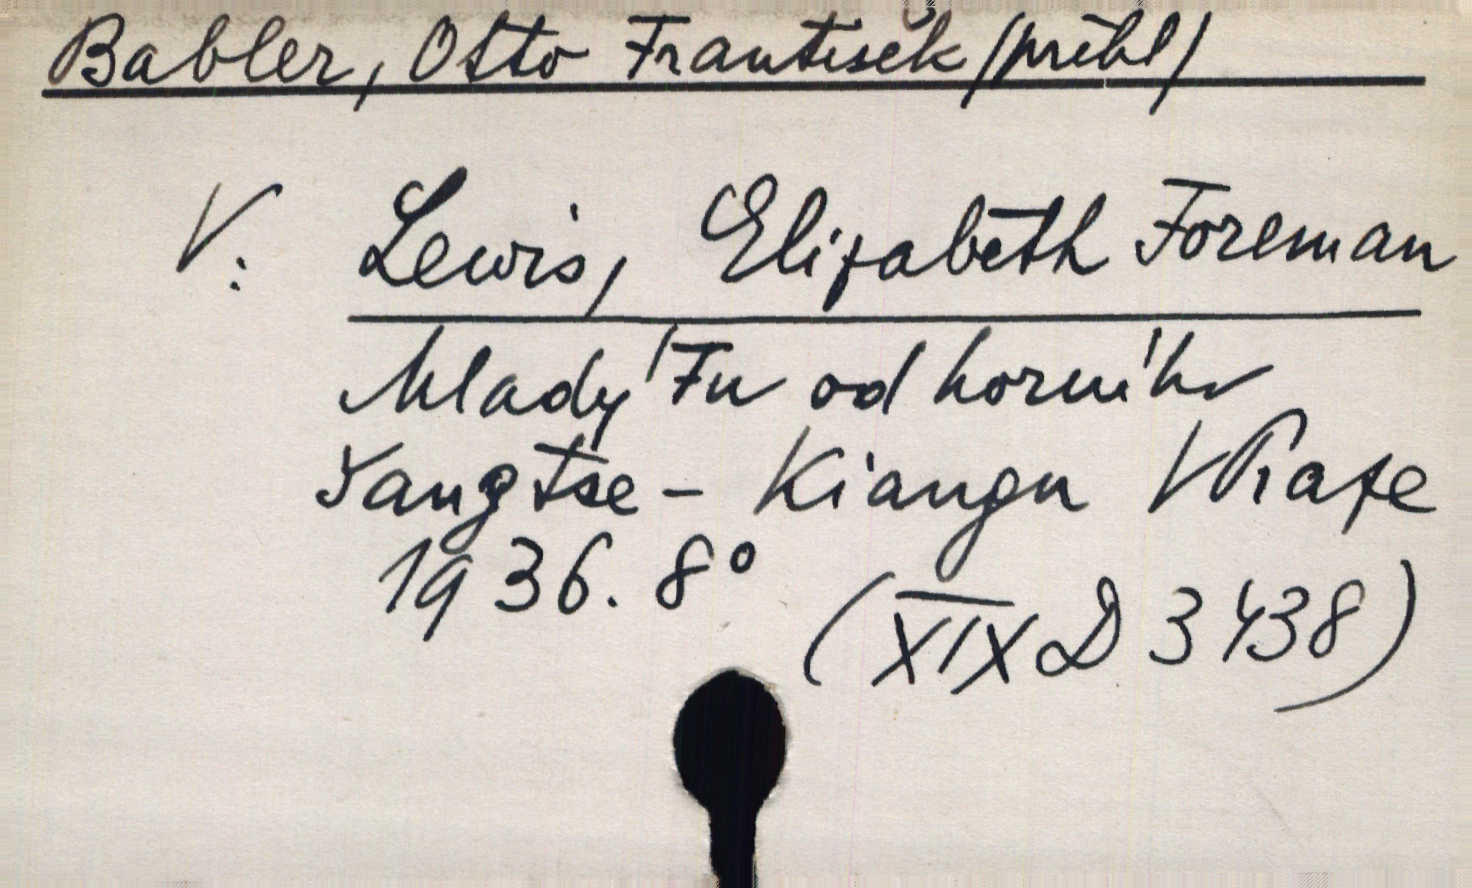 Babler, Otto František /přebl/
V: Lewis, Elizabeth Foreman
Mladý Fu od horního
Yangtse - Kiangu V Praze
1936. 8°
(XIX D 3438)